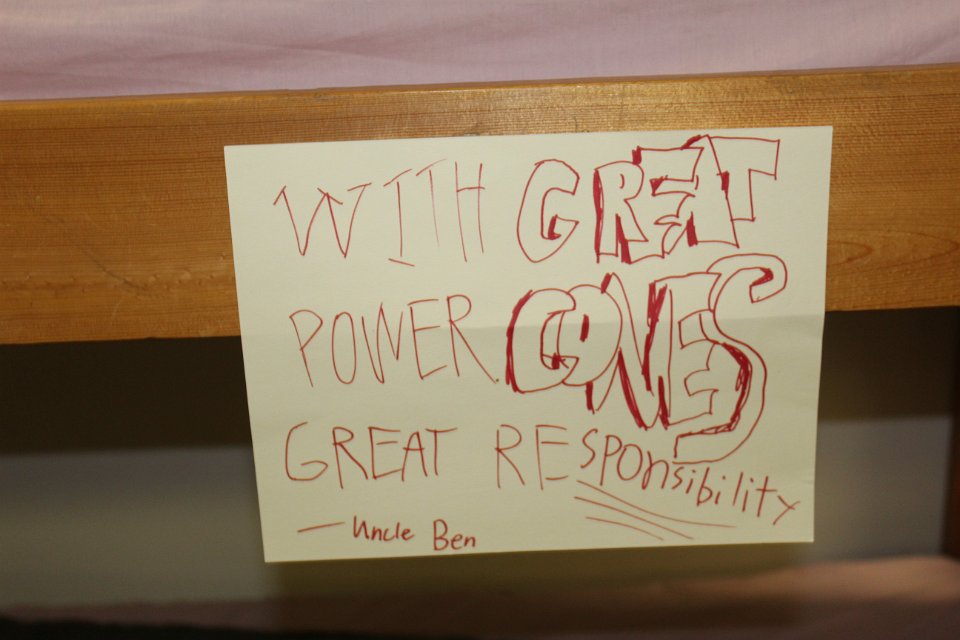 WITH GREAT
POWER COMES
GREAT RESponsibility
— Uncle Ben